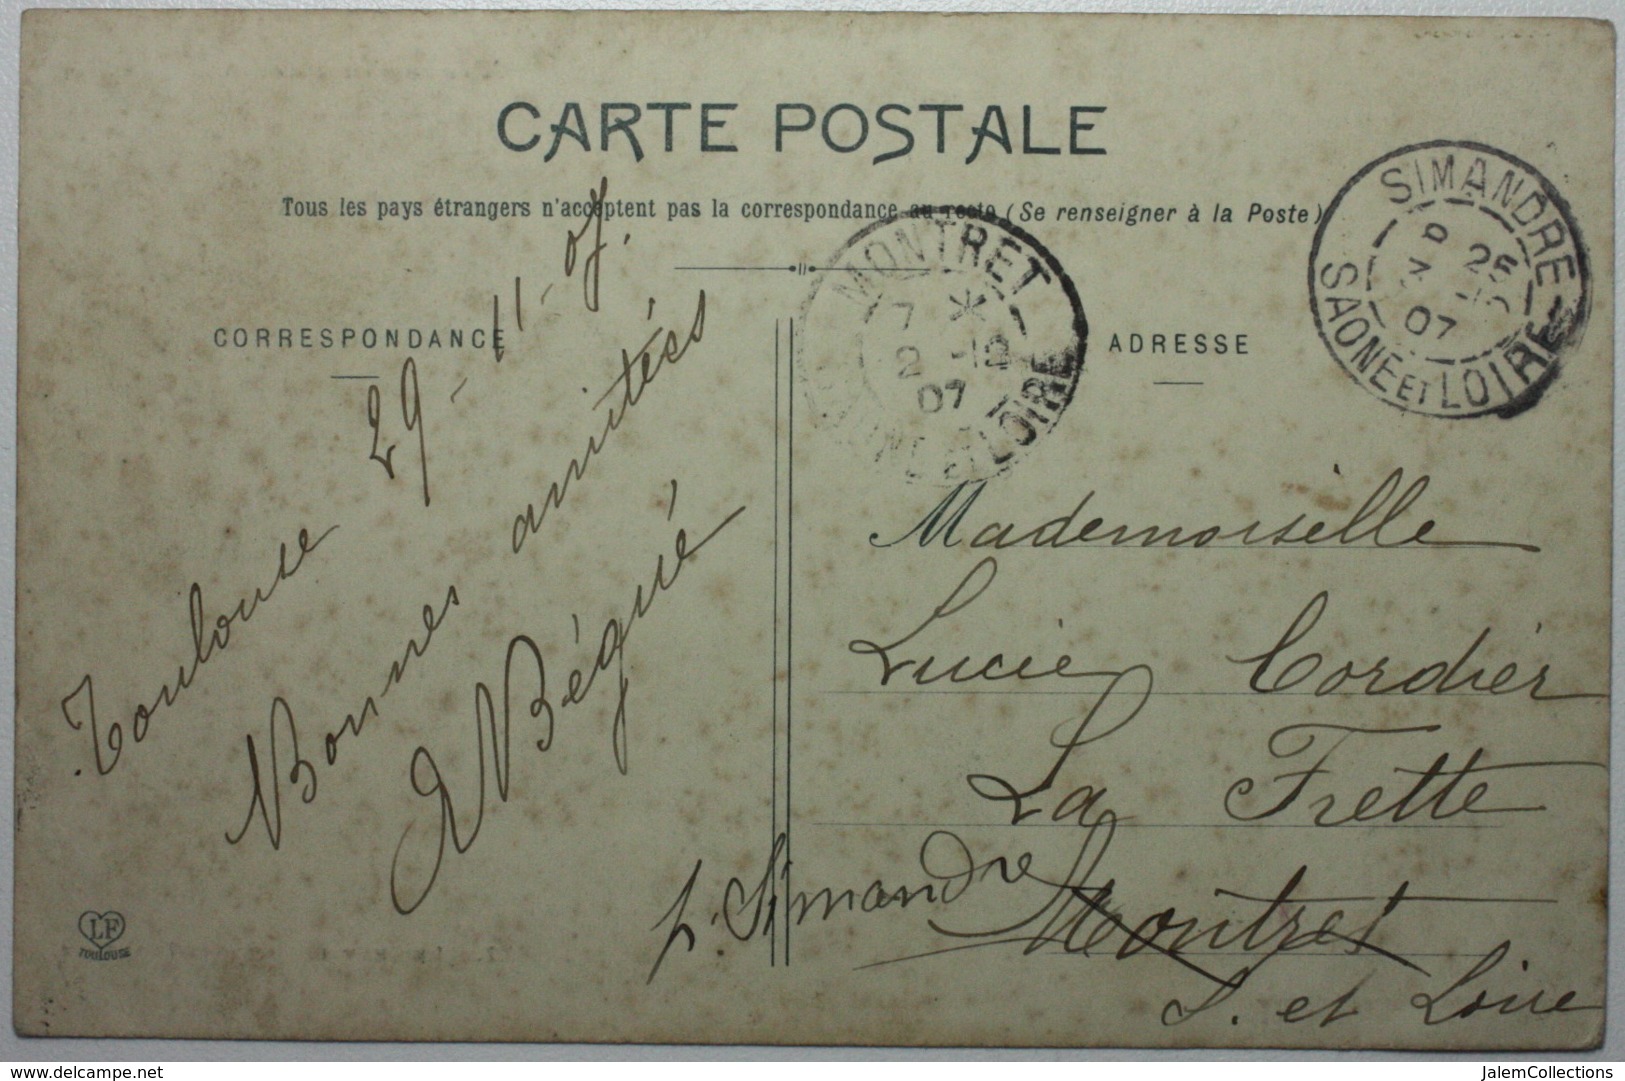 CARTE POSTALE
Tous les pays étrangers n'acceptent pas la correspondance au recto (Se renseigner à la Poste)
CORRESPONDANCE
ADRESSE
Toulouse 29-11-07.
Bonnes amitiés
Bégué
LF
TOULOUSE
MONTRET
7 *
2 -12
07
SAONE ET LOIRE
SIMANDRE
25
07
SAONE ET LOIRE
Mademoiselle
Lucie Cordier
La Frette
p. Simandre Montret
S. et Loire
www.delcampe.net
JalemCollections